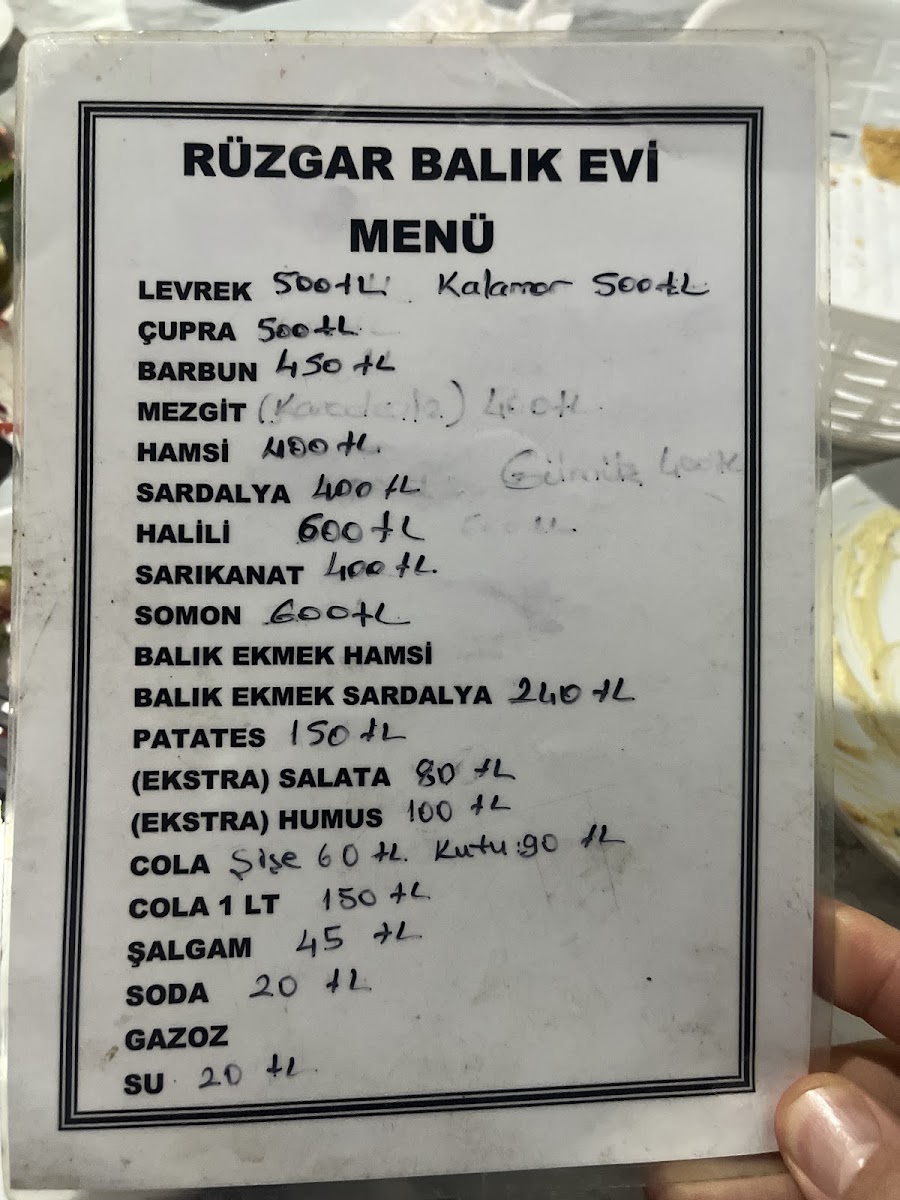 RÜZGAR BALIK EVİ
MENÜ
LEVREK 500 tL Kalamar 500 tL
ÇUPRA 500 tL
BARBUN 450 tL
MEZGİT
HAMSİ 400 tL
SARDALYA 400 tL
HALİLİ 600 tL
SARIKANAT 400 tL
SOMON 600 tL
BALIK EKMEK HAMSİ
BALIK EKMEK SARDALYA 240 tL
PATATES 150 tL
(EKSTRA) SALATA 80 tL
(EKSTRA) HUMUS 100 tL
COLA Şişe 60 tL. Kutu:90 tL
COLA 1 LT 150 tL
ŞALGAM 45 tL
SODA 20 tL
GAZOZ
SU 20 tL